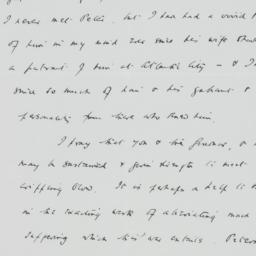 I never met Pelli. but I have had a vivid
of him in my mind ever since his wife
a portrait of him at Atlantic City - & I
since so much of him & his gallant &
personality from those who knew him.
I pray that you & the
may be sustained & given strength to meet
crippling blow. It is perhaps a help to
in the exacting work of alleviating much
suffering which this war entails.